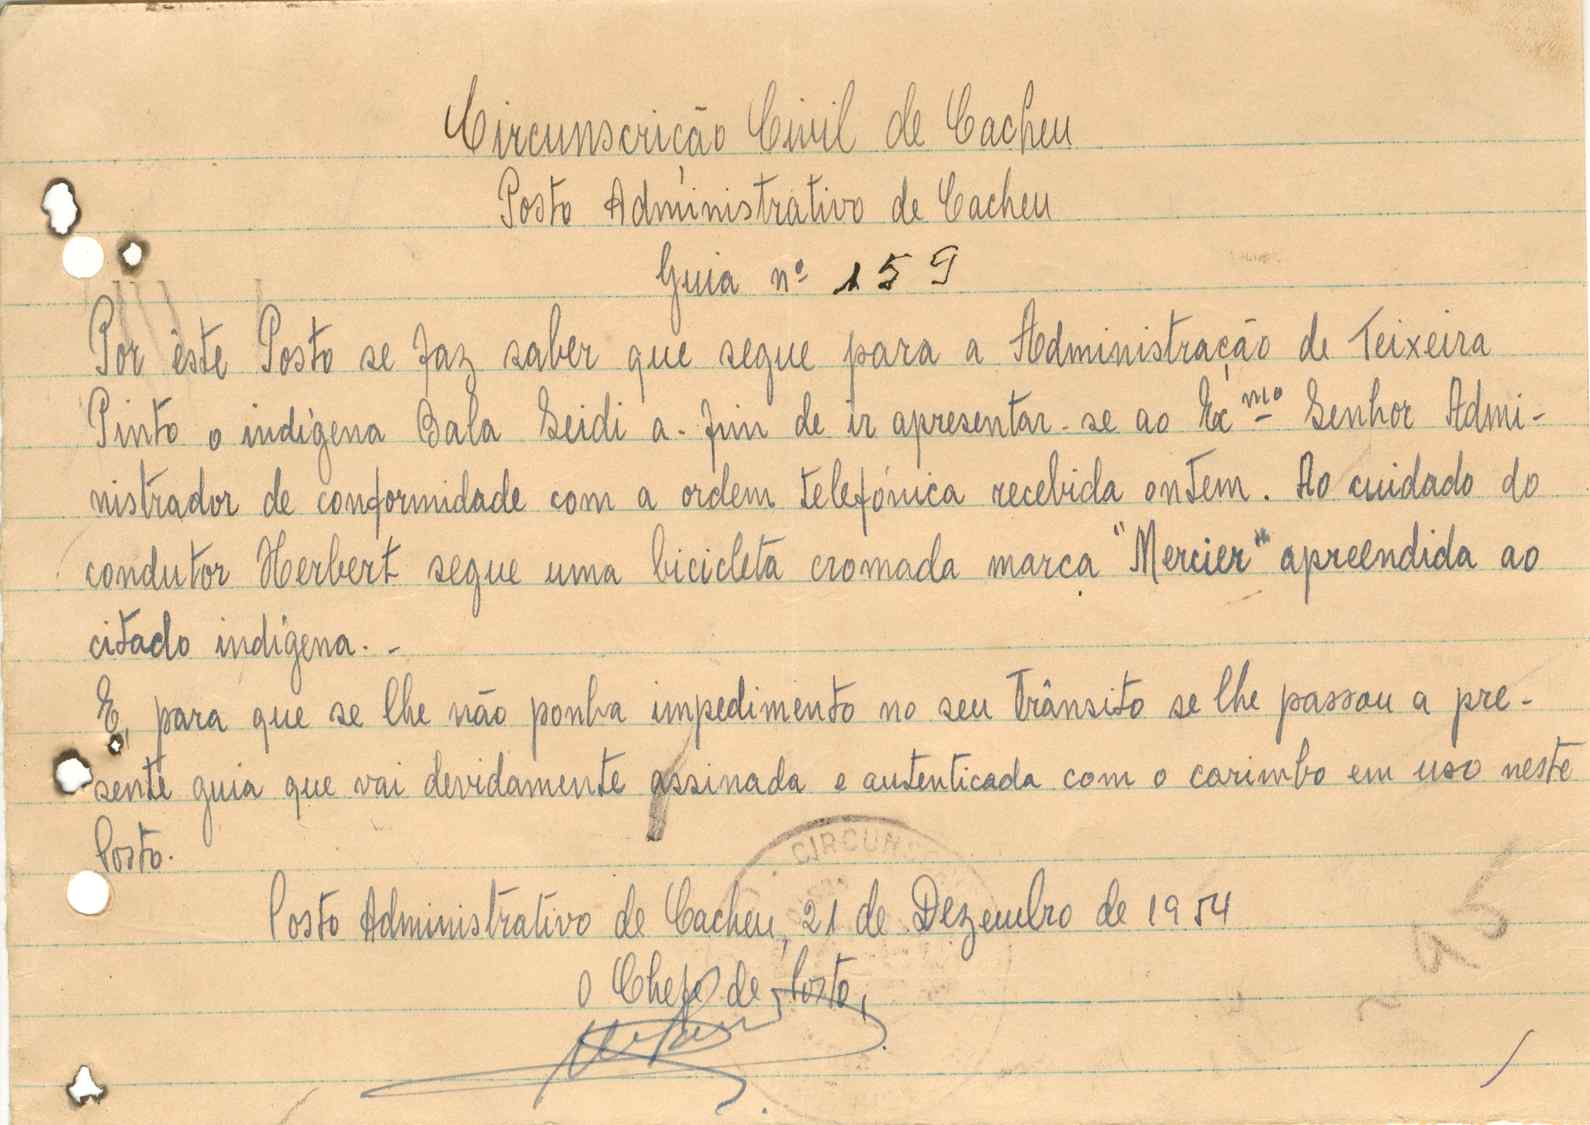 Circunscrição Civil de Cacheu
Posto Administrativo de Cacheu
Guia nº 159
Por êste Posto se faz saber que segue para a Administração de Teixeira
Pinto o indígena Bala Seidi a-fim de ir apresentar-se ao Exmo Senhor Admi-
nistrador de conformidade com a ordem telefónica recebida ontem. Ao cuidado do
condutor Herbert segue uma bicicleta cromada marca "Mercier" apreendida ao
citado indígena.-
E, para que se lhe não ponha impedimento no seu Trânsito se lhe passou a pre-
sente guia que vai devidamente assinada e autenticada com o carimbo em uso neste
Posto.
CIRCUNS
Posto Administrativo de Cacheu, 21 de Dezembro de 1954
O Chefe de Posto,